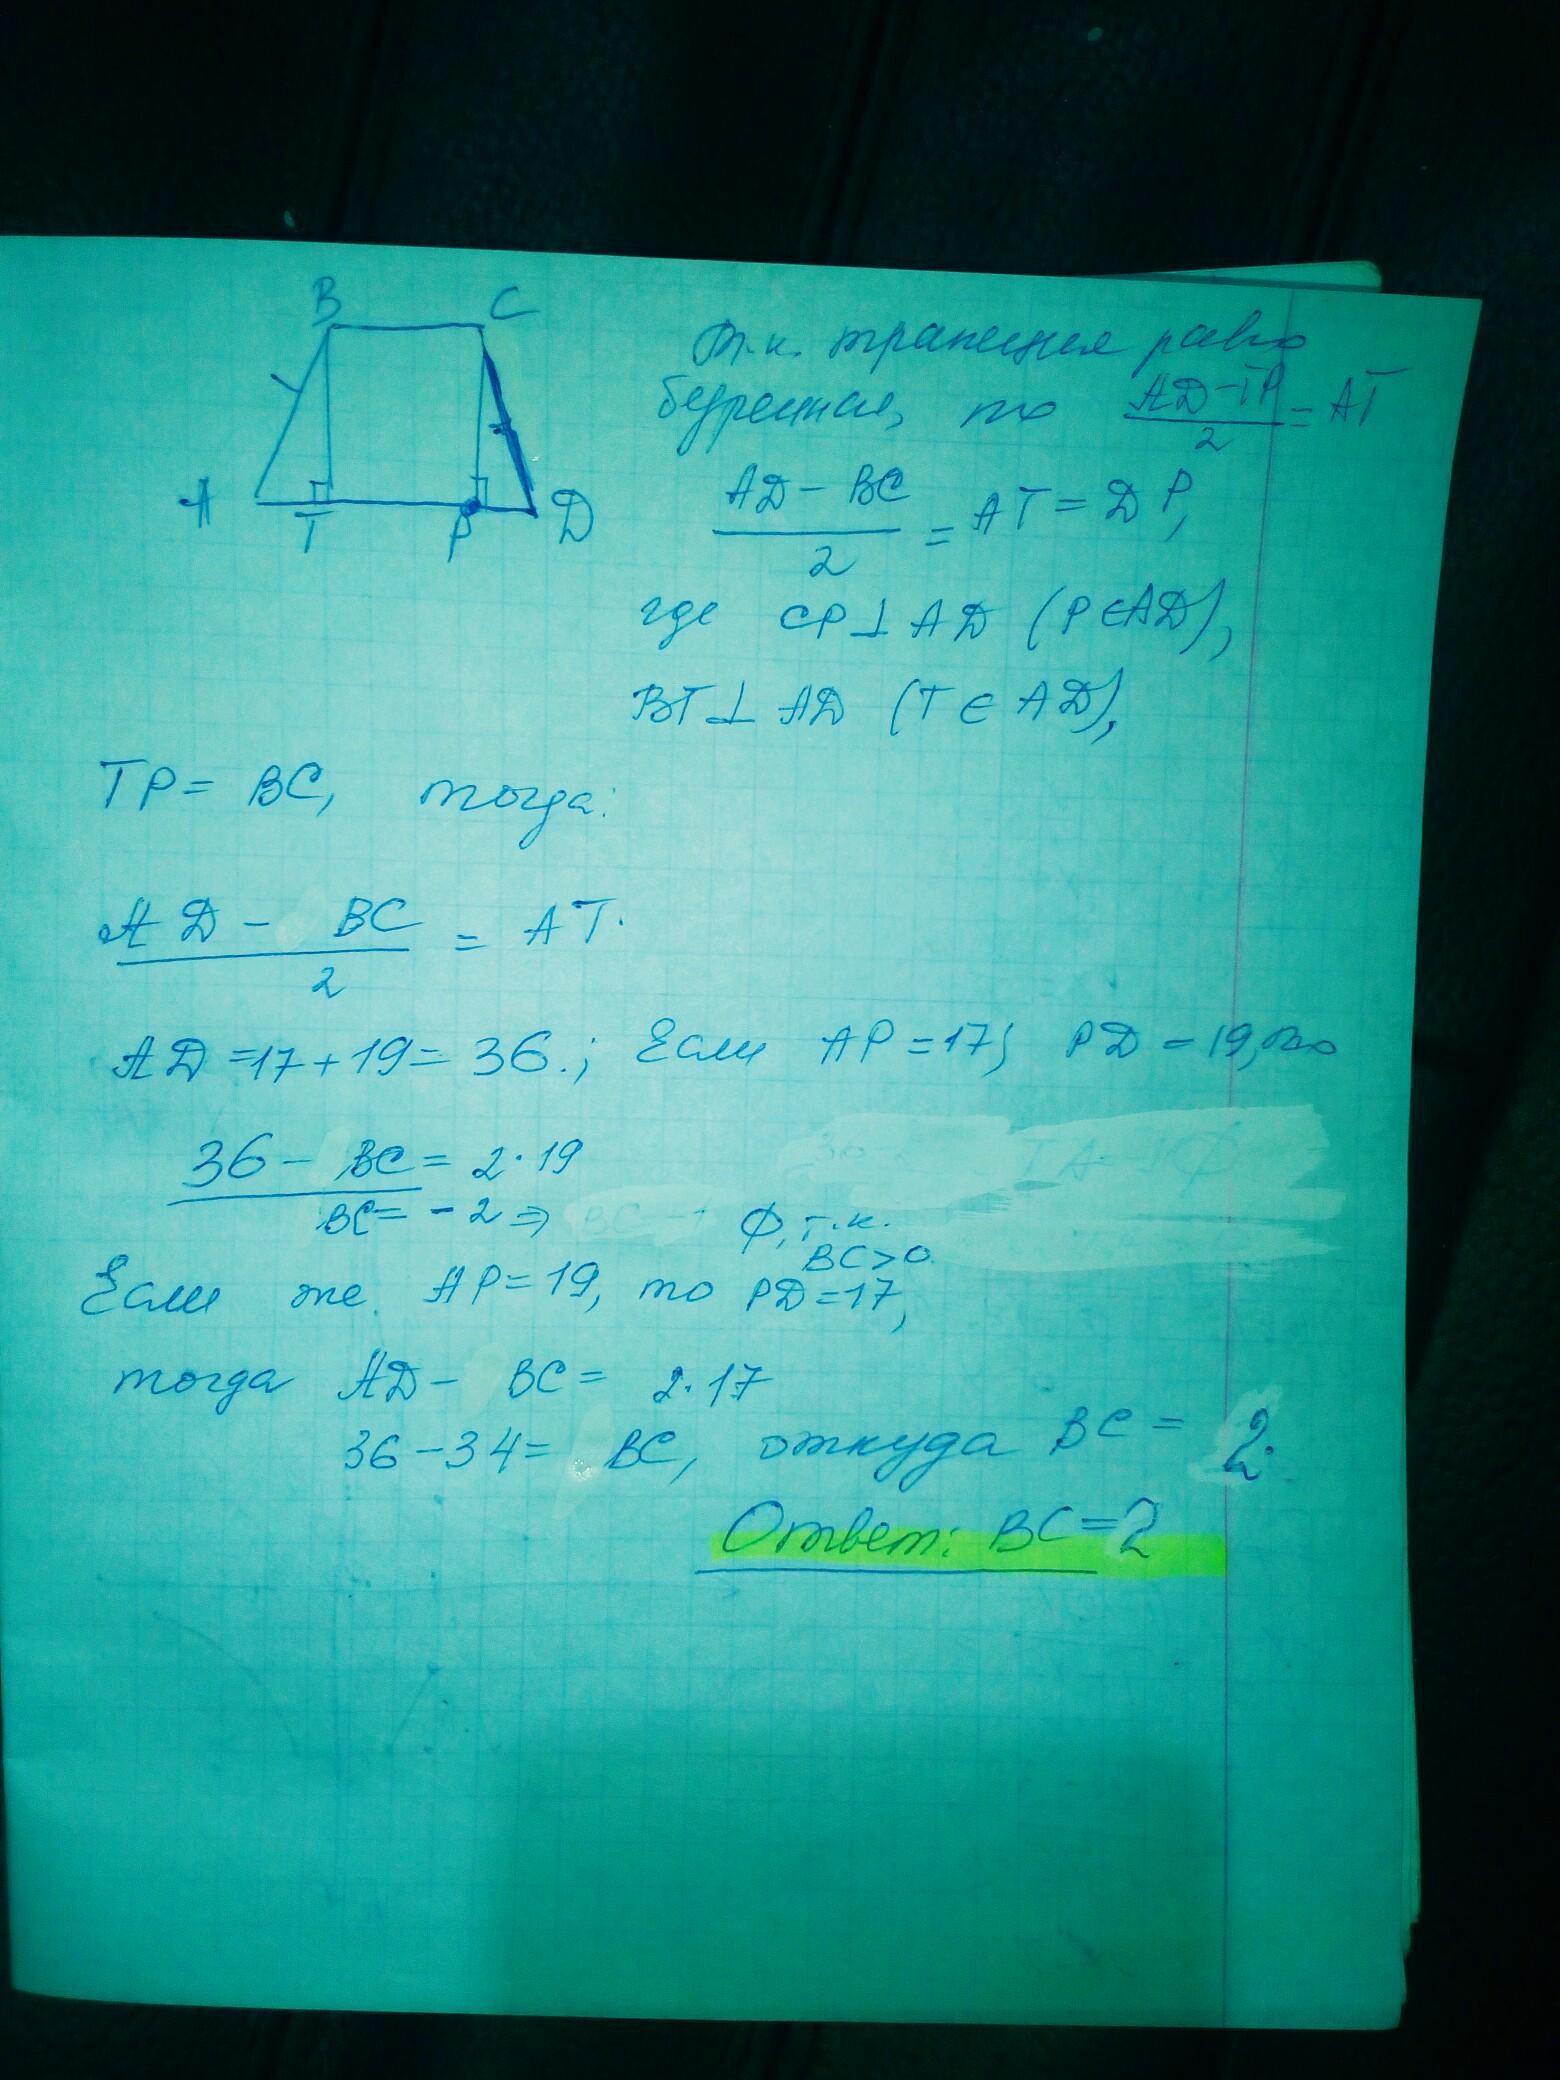 B C
A T P D
Т.к. трапеция равно
бедренная, то (AD-TP)/2 = AT
(AD - BC)/2 = AT = DP,
где CP ⊥ AD (P ∈ AD),
BT ⊥ AD (T ∈ AD),
TP = BC, тогда:
(AD - BC)/2 = AT.
AD = 17 + 19 = 36.; Если AP = 17; PD = 19, то
36 - BC = 2·19
BC = -2 ⇒ ∅, т.к.
BC > 0.
Если же AP = 19, то PD = 17,
тогда AD - BC = 2·17
36 - 34 = BC, откуда BC = 2.
Ответ: BC = 2